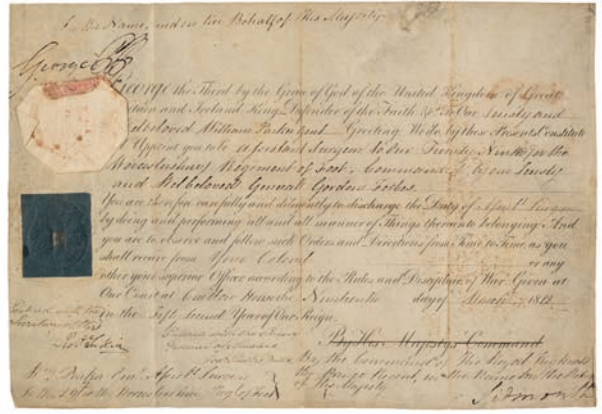 In the Name and on the Behalf of His Majesty
George P R
George the Third by the Grace of God of the United Kingdom of Great
Britain and Ireland King, Defender of the Faith &c. To Our Trusty and
Welbeloved William Parkin Gent Greeting. We do by these Presents Constitute
& Appoint you to be Assistant Surgeon to Our Twenty Ninth or the
Worcestershire Regiment of Foot, Commanded by Our Trusty
and Welbeloved General Gordon Forbes.
You are therefore carefully and diligently to discharge the Duty of Assist. Surgeon
by doing and performing all and all manner of Things thereunto belonging: And
you are to observe and follow such Orders and Directions from Time to Time, as you
shall receive from Your Colonel or any
other your superior Officer according to the Rules and Discipline of War. Given at
Our Court at Carlton House the Nineteenth day of March 1812
in the Fifty Second Year of Our Reign.
Entered with the
Secretary at War
Entered with the
General of
By His Majestys Command
By the Command of His Royal Highness
the Prince Regent, in the Name and on the Behalf
of His Majesty
Assist. Surgeon
to the 29th or the Worcestershire Regt. of Foot